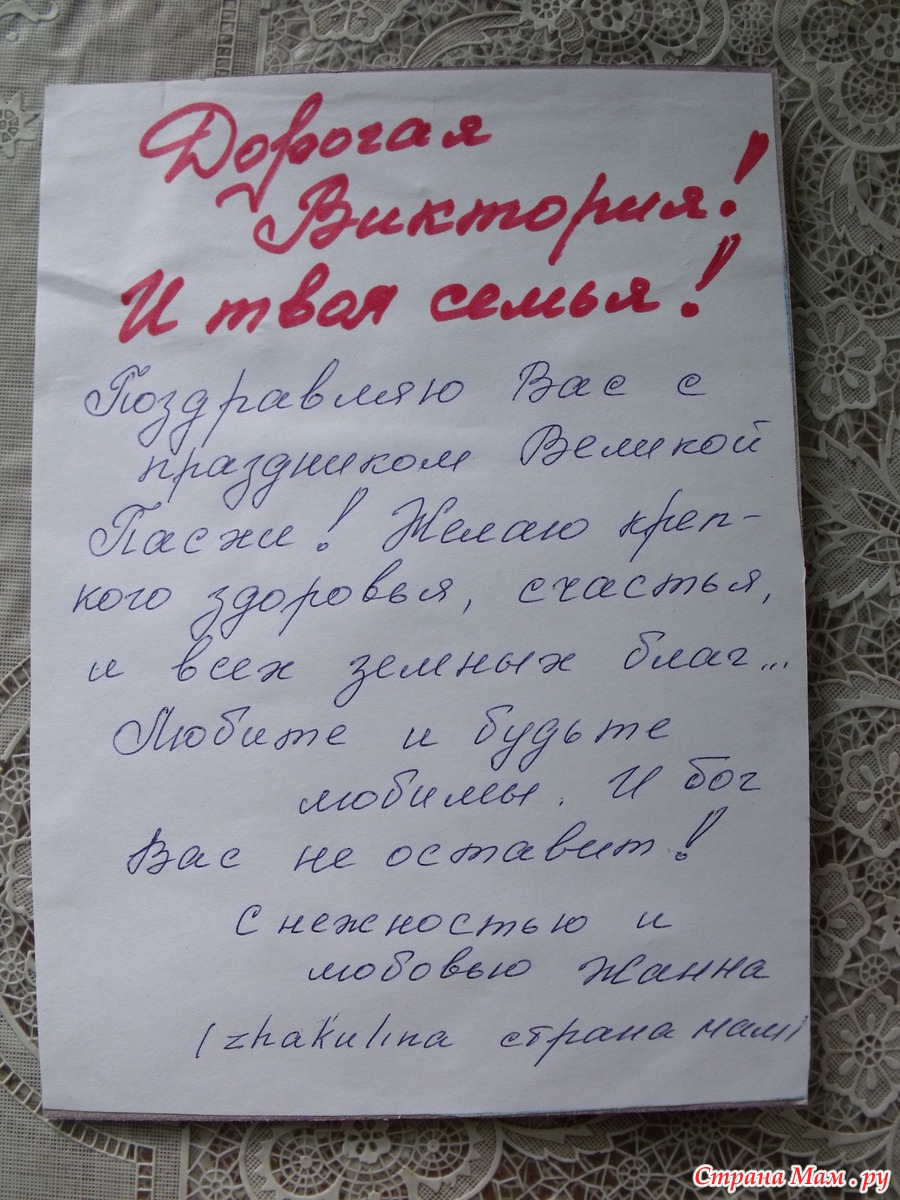 Дорогая
Виктория!
И твоя семья!
Поздравляю Вас с
праздником Великой
Пасхи! Желаю креп-
кого здоровья, счастья,
и всех земных благ...
Любите и будьте
любимы. И бог
Вас не оставит!
С нежностью и
любовью Жанна
/zhakulina страна мам/
Страна Мам.ру